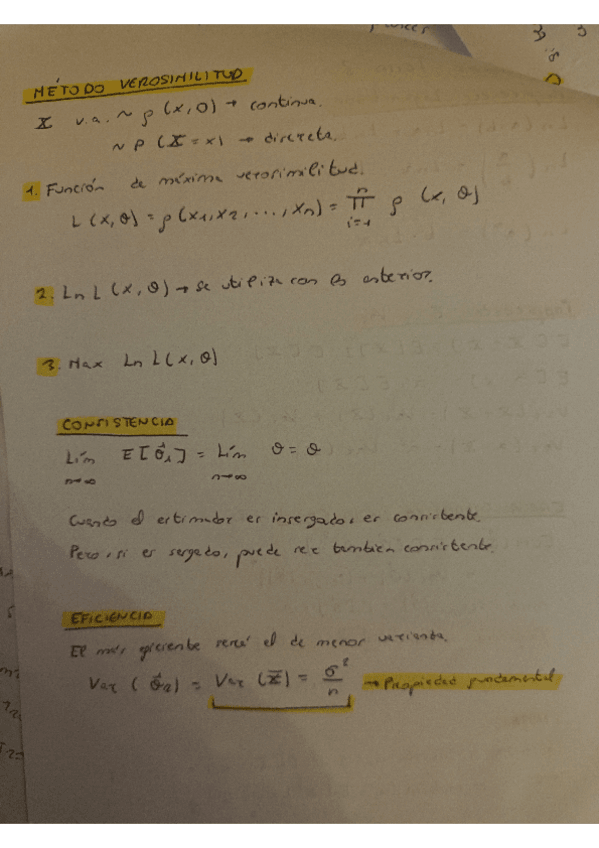 MÉTODO VEROSIMILITUD
X v.a. ~ ρ (x, θ) → continua.
~ P (X = x) → discreta.
1. Función de máxima verosimilitud.
L (x, θ) = ρ (x₁, x₂, ..., xₙ) = ∏ᵢ₌₁ⁿ ρ (x, θ)
2. Ln L (x, θ) → se utiliza con la anterior.
3. Max Ln L (x, θ)
CONSISTENCIA
Lím n→∞ E [θ̂₁] = Lím n→∞ θ = θ
Cuando el estimador es insesgado, es consistente.
Pero, si es sesgado, puede ser también consistente.
EFICIENCIA
El más eficiente será el de menor varianza.
Var (θ̂₂) = Var (X̄) = σ²/n → Propiedad fundamental